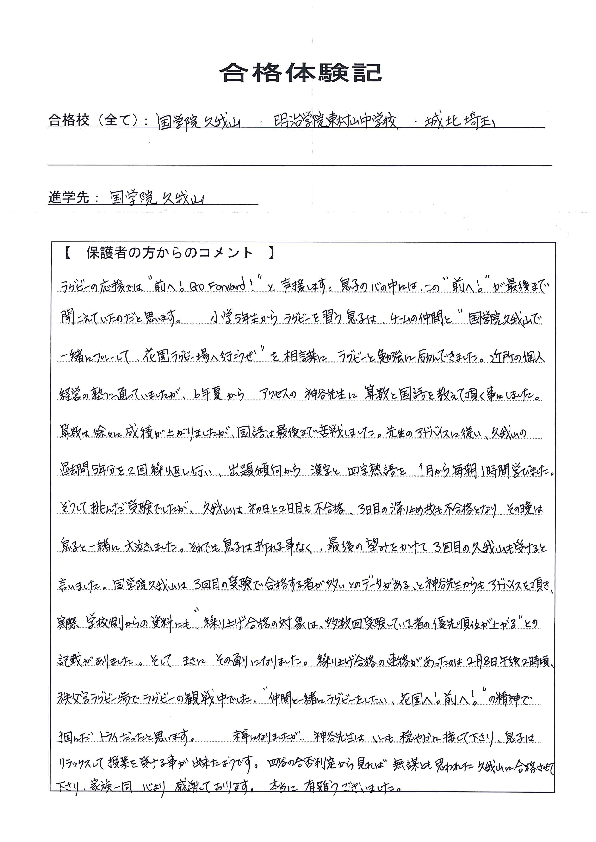 合格体験記
合格校（全て）： 国学院久我山 ・ 明治学院東村山中学校 ・ 城北埼玉
進学先： 国学院久我山
【 保護者の方からのコメント 】
ラグビーの応援では"前へ！Go Forward！"と声援します。息子の心の中には、この"前へ！"が最後まで
聞こえていたのだと思います。 小学5年生からラグビーを習う息子は、チームの仲間と"国学院久我山で
一緒にプレーして、花園ラグビー場へ行こうぜ"を相言葉に ラグビーと勉強に励んできました。近所の個人
経営の塾に通っていましたが、6年夏から アクセスの 神谷先生に 算数と国語を教えて頂く事にしました。
算数は徐々に成績が上がりましたが、国語は最後まで苦戦しました。先生のアドバイスに従い、久我山の
過去問5年分を2回繰り返し行い、出題傾向から 漢字と 四字熟語を 1月から毎朝1時間学びました。
そうして挑んだ受験でしたが、久我山は初日と2日目も不合格、3日目の滑り止め校も不合格となり その晩は
息子と一緒に大泣きました。それでも息子は折れる事なく、最後の望みをかけて3回目の久我山も受けると
言いました。国学院久我山は3回目の受験で合格する者が多いとのデータがある、と神谷先生からもアドバイスを頂き、
実際、学校側からの資料にも"繰り上げ合格の対象は、多数回受験している者の優先順位が上がる"との
記載がありました。そして まさに その通りになりました。繰り上げ合格の連絡があったのは2月8日午後2時頃、
秩父宮ラグビー場でラグビーの観戦中でした。"仲間と一緒にラグビーをしたい、花園へ！前へ！"の精神で
掴んだトライだったと思います。 末筆になりましたが、神谷先生は いつも 穏やかに接して下さり、息子は
リラックスして授業を受ける事が出来たようです。四谷の合否判定から見れば 無謀とも思われた久我山に合格させて
下さり、家族一同 心より 感謝しております。 本当に 有難うございました。